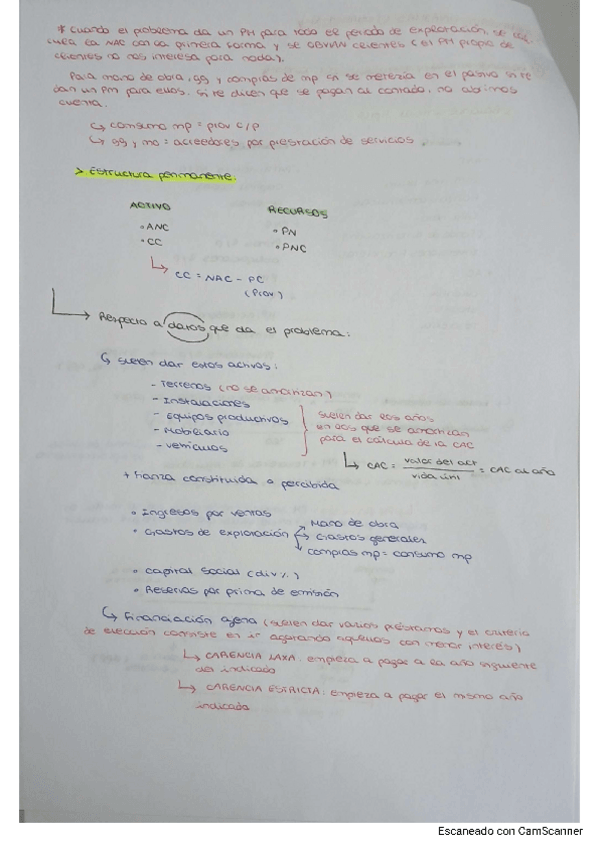 * Cuando el problema da un PM para todo el periodo de explotación, se
la NAC con la primera forma y se OBVIAN clientes (el PM propio de
clientes no nos interesa para nada).
Para mano de obra, gg y compras de mp sí se meterían en el pasivo si te
dan un PM para ellos. Si te dicen que se pagan al contado, no abrimos
cuenta.
↳ consumo mp = prov c/p
↳ gg, mo = acreedores por prestación de servicios.
> Estructura permanente.
ACTIVO RECURSOS
• ANC • PN
• CC • PNC
↳ CC = NAC - PC
(Prov)
→ Respecto a datos que da el problema:
↳ suelen dar estos activos:
- Terrenos (no se amortizan)
- Instalaciones
- Equipos productivos
- Mobiliario
- vehículos
suelen dar los años
en los que se amortizan
para el cálculo de la CAC
↳ CAC = valor del act / vida útil = CAC al año
+ Fianza constituida o percibida
• Ingresos por ventas
• Gastos de explotación → Mano de obra
→ Gastos generales
→ compras mp = consumo mp
• capital social (div %)
• Reservas por prima de emisión
↳ Financiación ajena (suelen dar varios préstamos y el criterio
de elección consiste en ir agotando aquellos con menor interés)
↳ CARENCIA LAXA: empieza a pagar a la año siguiente
del indicado
↳ CARENCIA ESTRICTA: empieza a pagar el mismo año
indicado
Escaneado con CamScanner